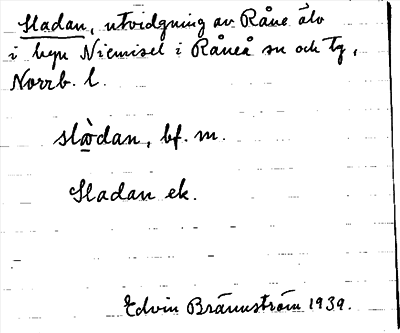 Sladan, utvidgning av Råne älv
i byn Niemisel i Råneå sn och tg,
Norrb. l.
slὰdan, bf. m.
Sladan ek.
Edvin Brännström 1939.